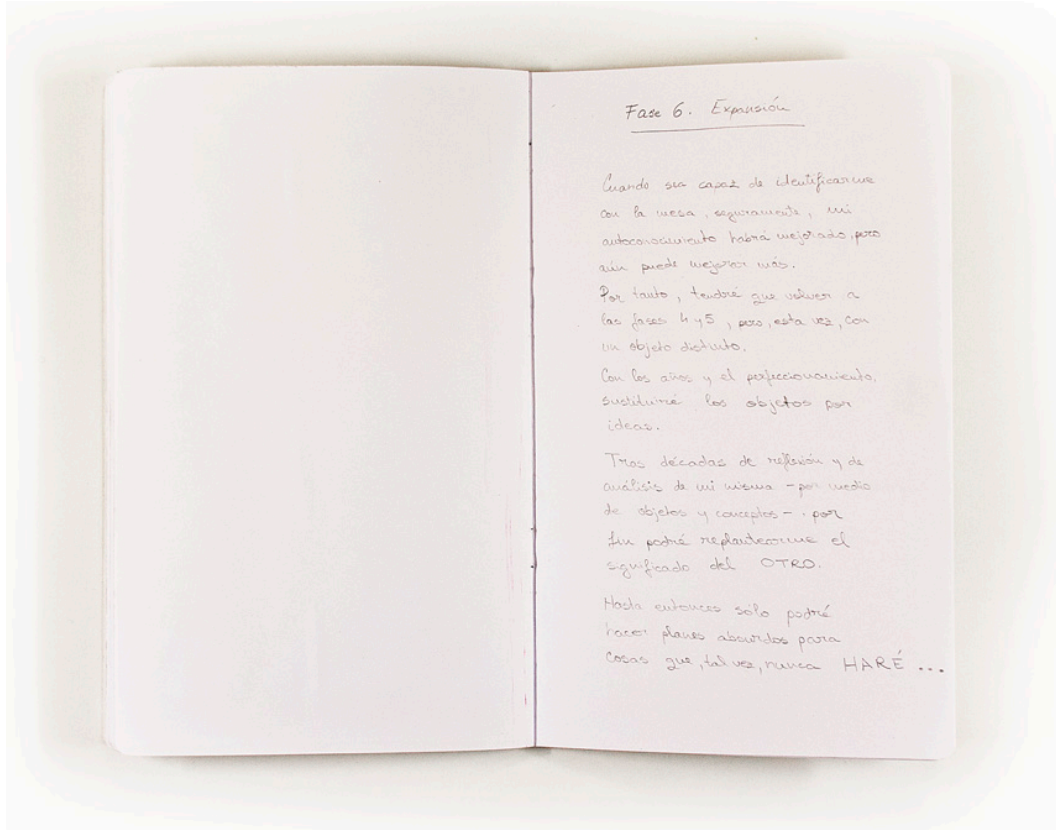 Fase 6. Expansión
Cuando sea capaz de identificarme
con la mesa, seguramente, mi
autoconocimiento habrá mejorado, pero
aún puede mejorar más.
Por tanto, tendré que volver a
las fases 4 y 5, pero, esta vez, con
un objeto distinto.
Con los años y el perfeccionamiento,
sustituiré los objetos por
ideas.
Tras décadas de reflexión y de
análisis de mi misma - por medio
de objetos y conceptos - . por
fin podré replantearme el
significado del OTRO.
Hasta entonces sólo podré
hacer planes absurdos para
cosas que, tal vez, nunca HARÉ ...